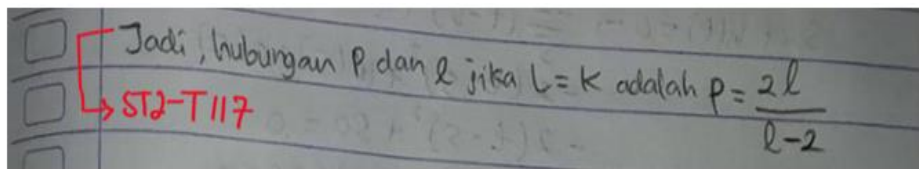 Jadi, hubungan P dan l jika L = K adalah p = 2l / l-2
ST2-T117